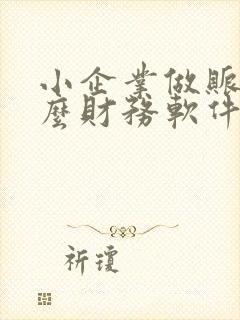 小企業做賬
麼財務軟件
祈瓊